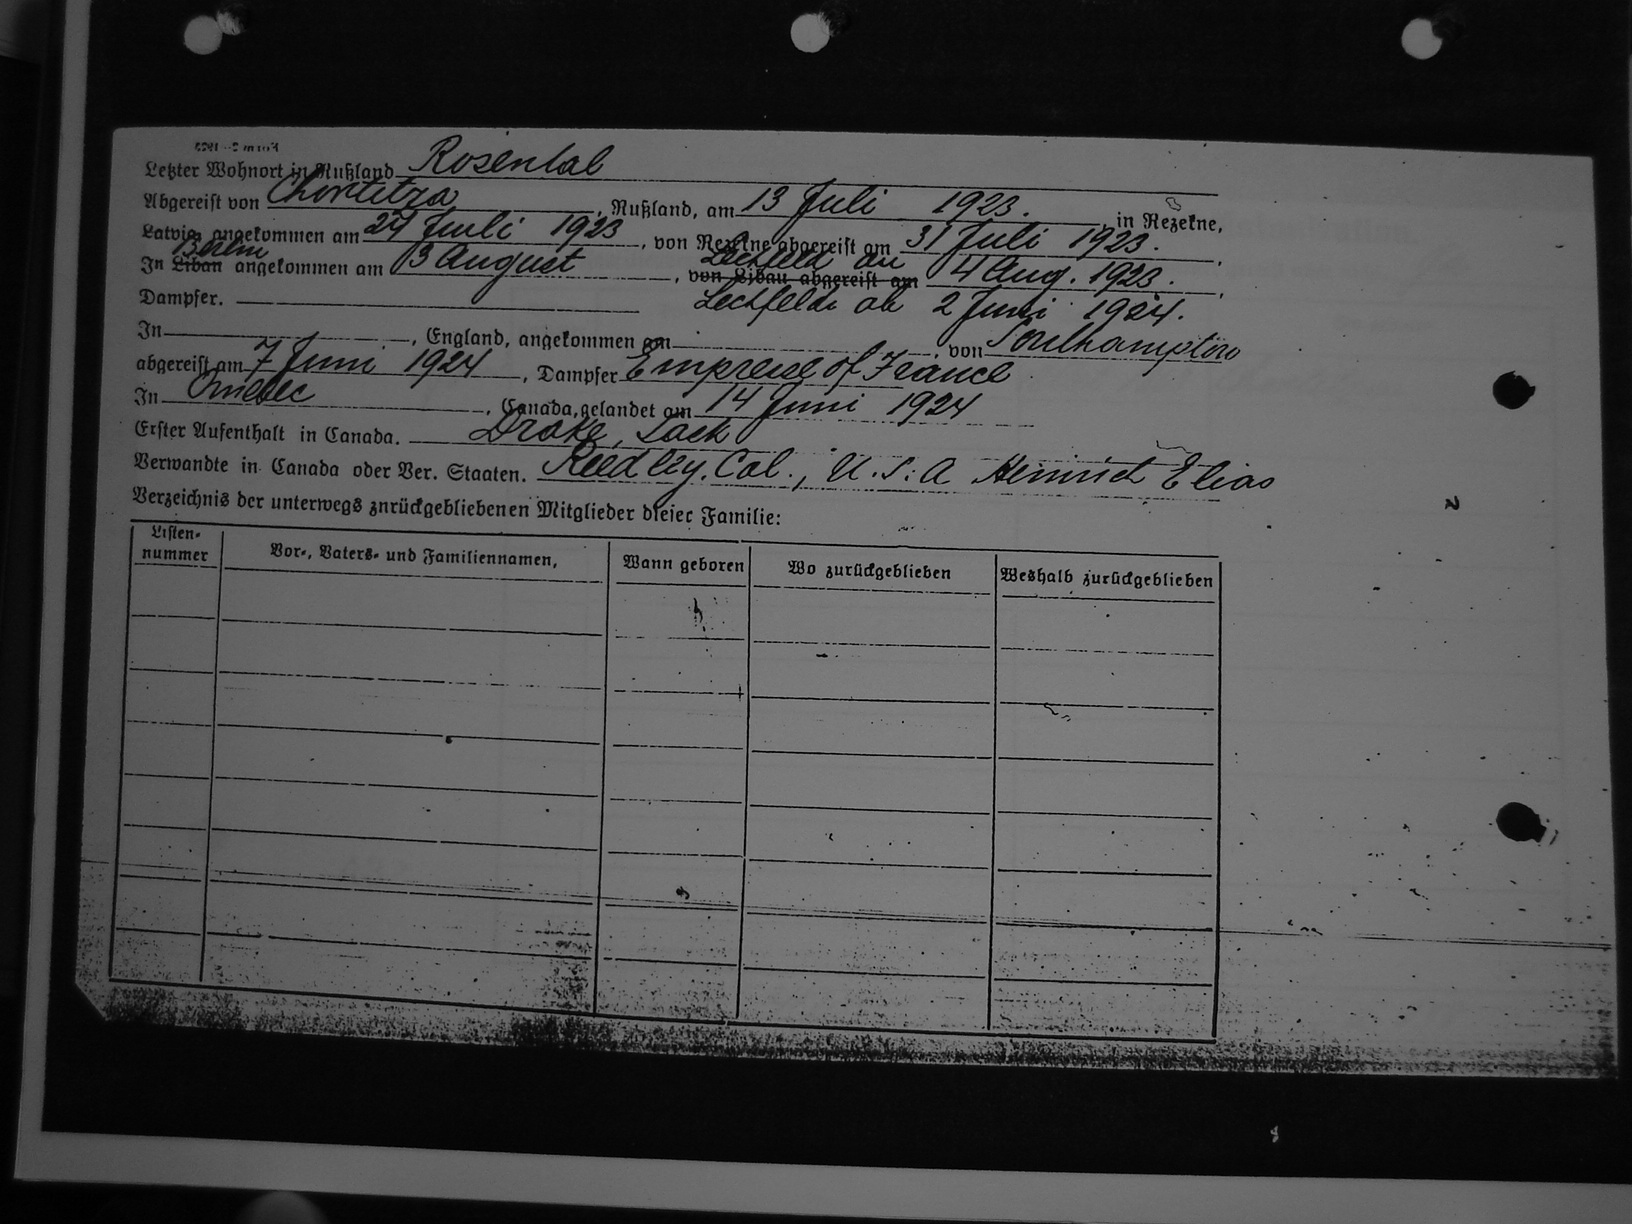 Letzter Wohnort in Rußland Rosental
Abgereist von Chortitza, Rußland, am 13 Juli 1923. in Rezekne,
Latvia angekommen am 27 Juli 1923, von Rezekne abgereist am 31 Juli 1923.
Berlin Lechfeld an
In Libau angekommen am 3 August, von Libau abgereist am 4 Aug. 1923.,
Dampfer. Lechfelde ab 2 Juni 1924.
In, England, angekommen am von Southampton
abgereist am 7 Juni 1924, Dampfer Empresse of France
In Quebec, Canada, gelandet am 14 Juni 1924
Erster Aufenthalt in Canada. Drake, Sack
Verwandte in Canada oder Ver. Staaten. Reedley. Cal., U.S.A Heinrich Elias
Verzeichnis der unterwegs znrückgebliebenen Mitglieder dieiec Familie:
Listen-
nummer Vor-, Vaters- und Familiennamen, Wann geboren Wo zurückgeblieben Weshalb zurückgeblieben